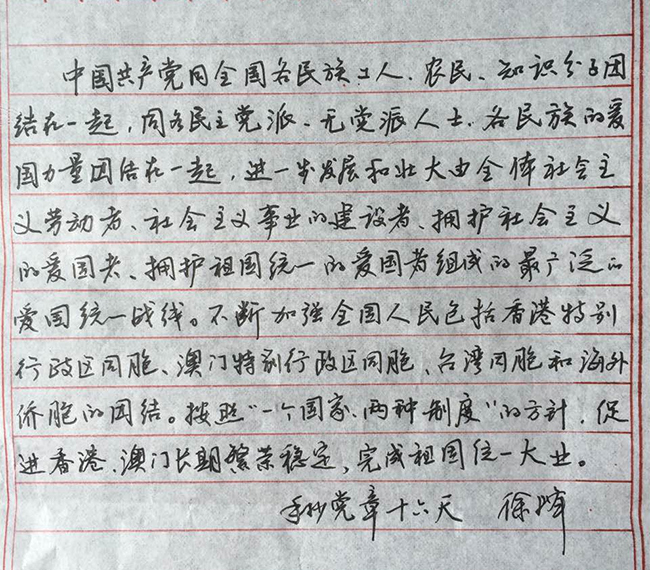 中国共产党同全国各民族工人、农民、知识分子团
结在一起，同各民主党派、无党派人士、各民族的爱
国力量团结在一起，进一步发展和壮大由全体社会主
义劳动者、社会主义事业的建设者、拥护社会主义
的爱国者、拥护祖国统一的爱国者组成的最广泛的
爱国统一战线。不断加强全国人民包括香港特别
行政区同胞、澳门特别行政区同胞、台湾同胞和海外
侨胞的团结。按照“一个国家、两种制度”的方针，促
进香港、澳门长期繁荣稳定，完成祖国统一大业。
手抄党章十六天 徐